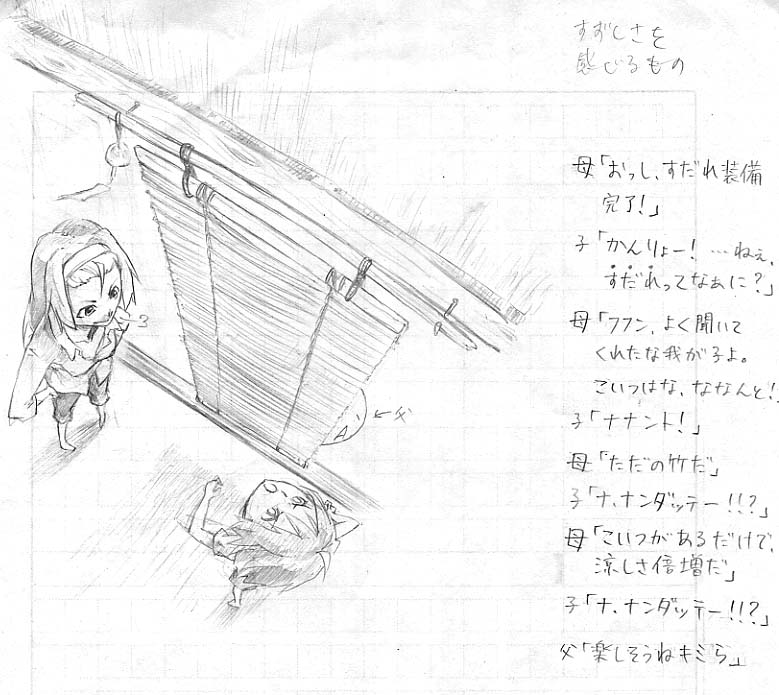 すずしさを
感じるもの
母「おっし、すだれ装備
完了!」
子「かんりょー! …ねぇ、
すだれってなぁに?」
母「フフン、よく聞いて
くれたな我が子よ。
こいつはな、ななんと!
子「ナナント!」
母「ただの竹だ」
子「ナ、ナンダッテー!!?」
母「こいつがあるだけで、
涼しさ倍増だ」
子「ナ、ナンダッテー!!?」
父「楽しそうねキミら」
←父